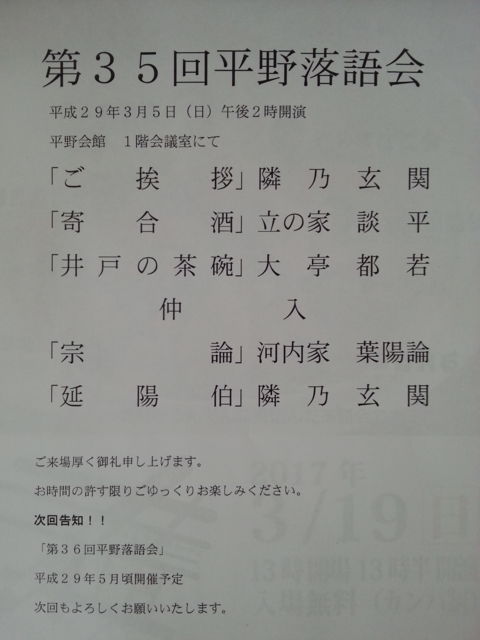 第３５回平野落語会
平成２９年３月５日（日）午後２時開演
平野会館　１階会議室にて
「ご挨拶」隣乃玄関
「寄合酒」立の家談平
「井戸の茶碗」大亭都若
仲入
「宗論」河内家　葉陽論
「延陽伯」隣乃玄関
ご来場厚く御礼申し上げます。
お時間の許す限りごゆっくりお楽しみください。
次回告知！！
「第３６回平野落語会」
平成２９年５月頃開催予定
次回もよろしくお願いいたします。
2017年
3/19日